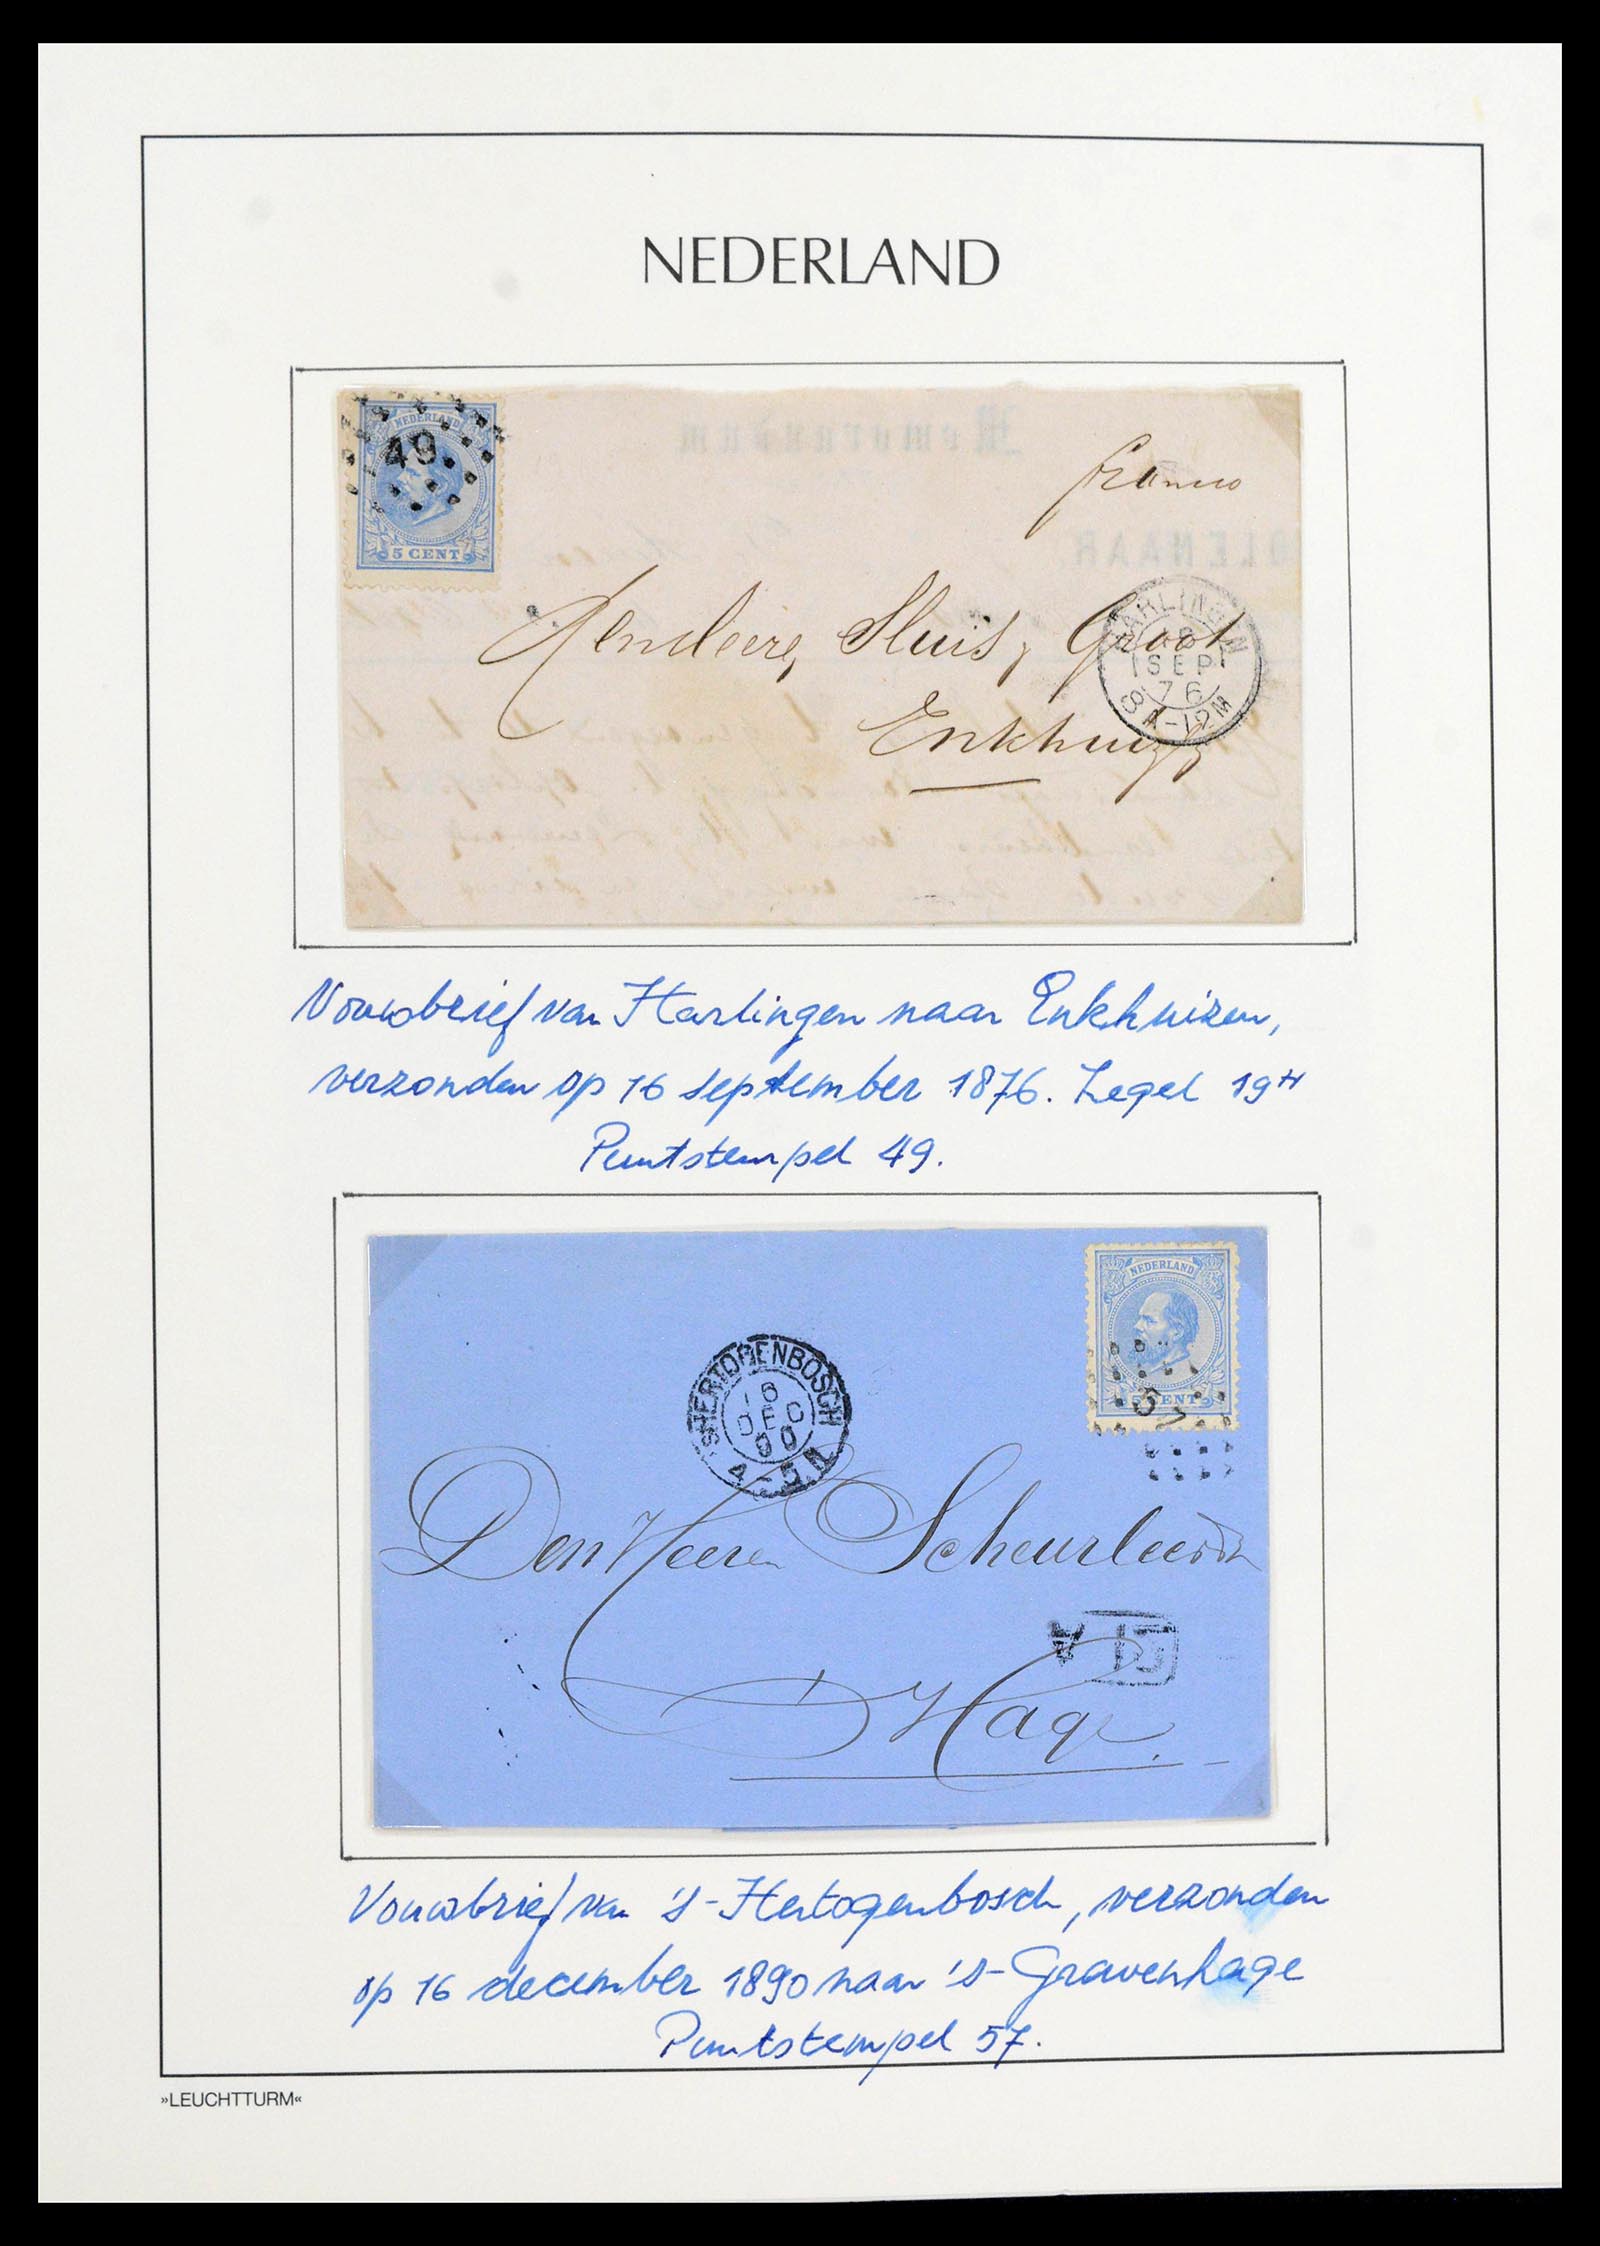 NEDERLAND
Memorandum
NEDERLAND
49
5 CENT
franco
OLENAAR
Sluis, Groot
Enkhuizen
HARLINGEN
SEP
76
8 A-12M
Vouwbrief van Harlingen naar Enkhuizen,
verzonden op 16 september 1876. Zegel 19H
Puntstempel 49.
NEDERLAND
5 CENT
57
'SHERTOGENBOSCH
16
DEC
90
4-5N
Den Heeren Scheurleer
Hage
Vouwbrief van 's-Hertogenbosch, verzonden
op 16 december 1890 naar 's-Gravenhage
Puntstempel 57.
»LEUCHTTURM«